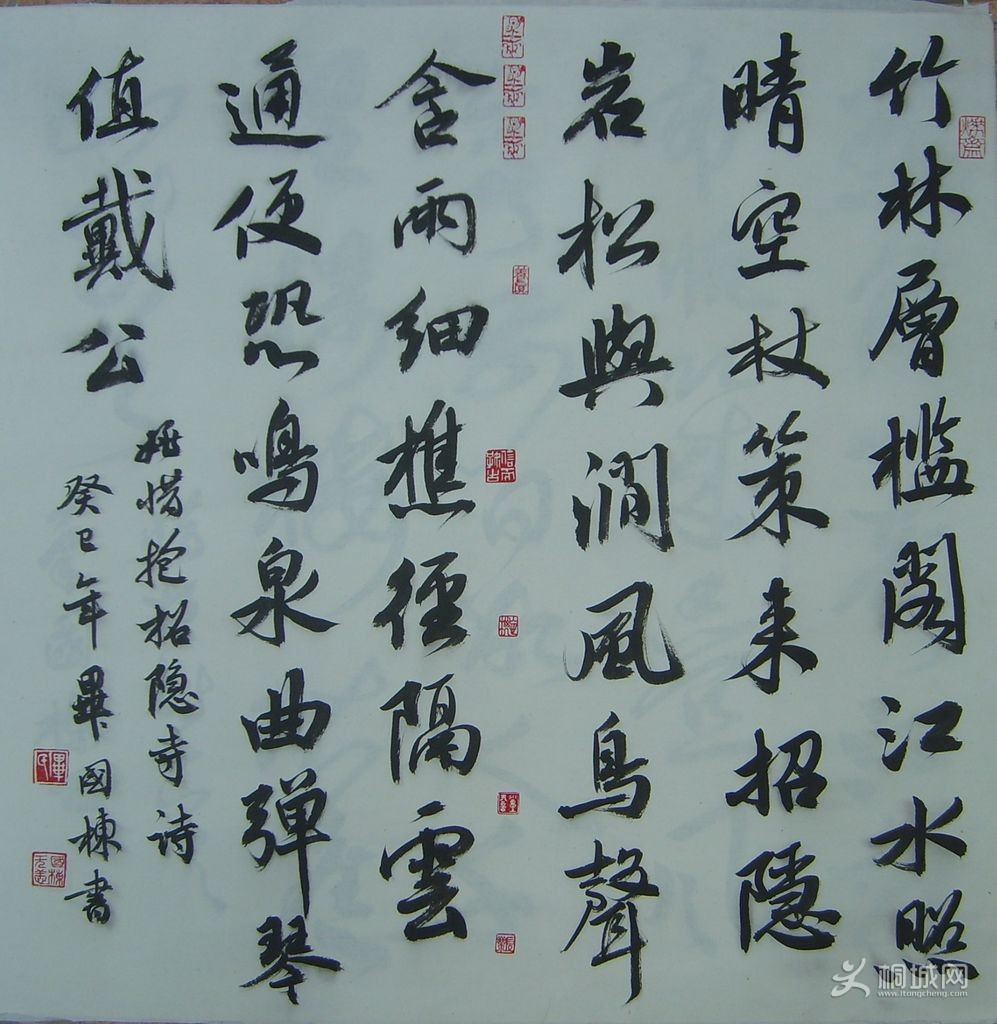 竹林層檻閣江水照
晴空杖策来招隱
岩松與澗風鳥聲
含雨細樵徑隔雲
通便恐鳴泉曲弹琴
值戴公
姚惜抱招隐寺诗
癸巳年畢國棟書
桐城网
www.itongcheng.com